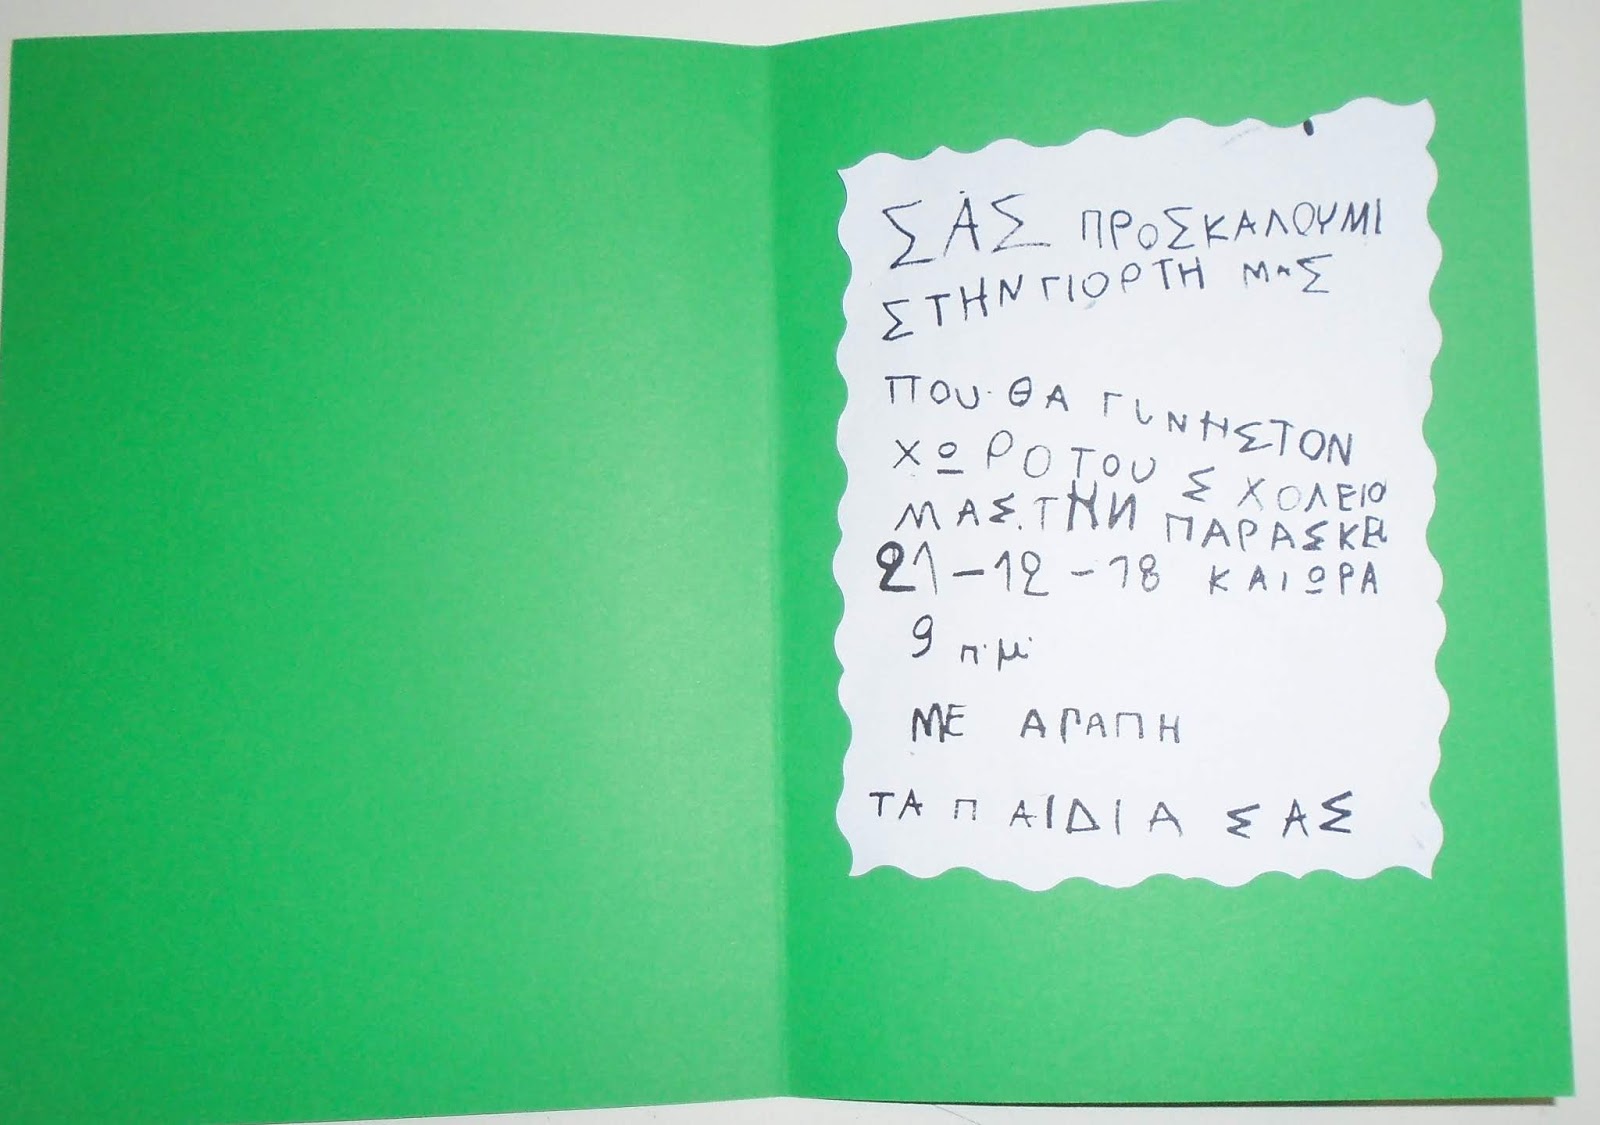 ΣΑΣ ΠΡΟΣΚΑΛΟΥΜΙ
ΣΤΗΝ ΓΙΟΡΤΗ ΜΑΣ
ΠΟΥ ΘΑ ΓΙΝΗ ΣΤΟΝ
ΧΩΡΟ ΤΟΥ ΣΧΟΛΕΙΟ
ΜΑΣ. ΤΗΝ ΠΑΡΑΣΚΕΙ
21-12-18 ΚΑΙ ΩΡΑ
9 π.μ.
ΜΕ ΑΓΑΠΗ
ΤΑ ΠΑΙΔΙΑ ΣΑΣ